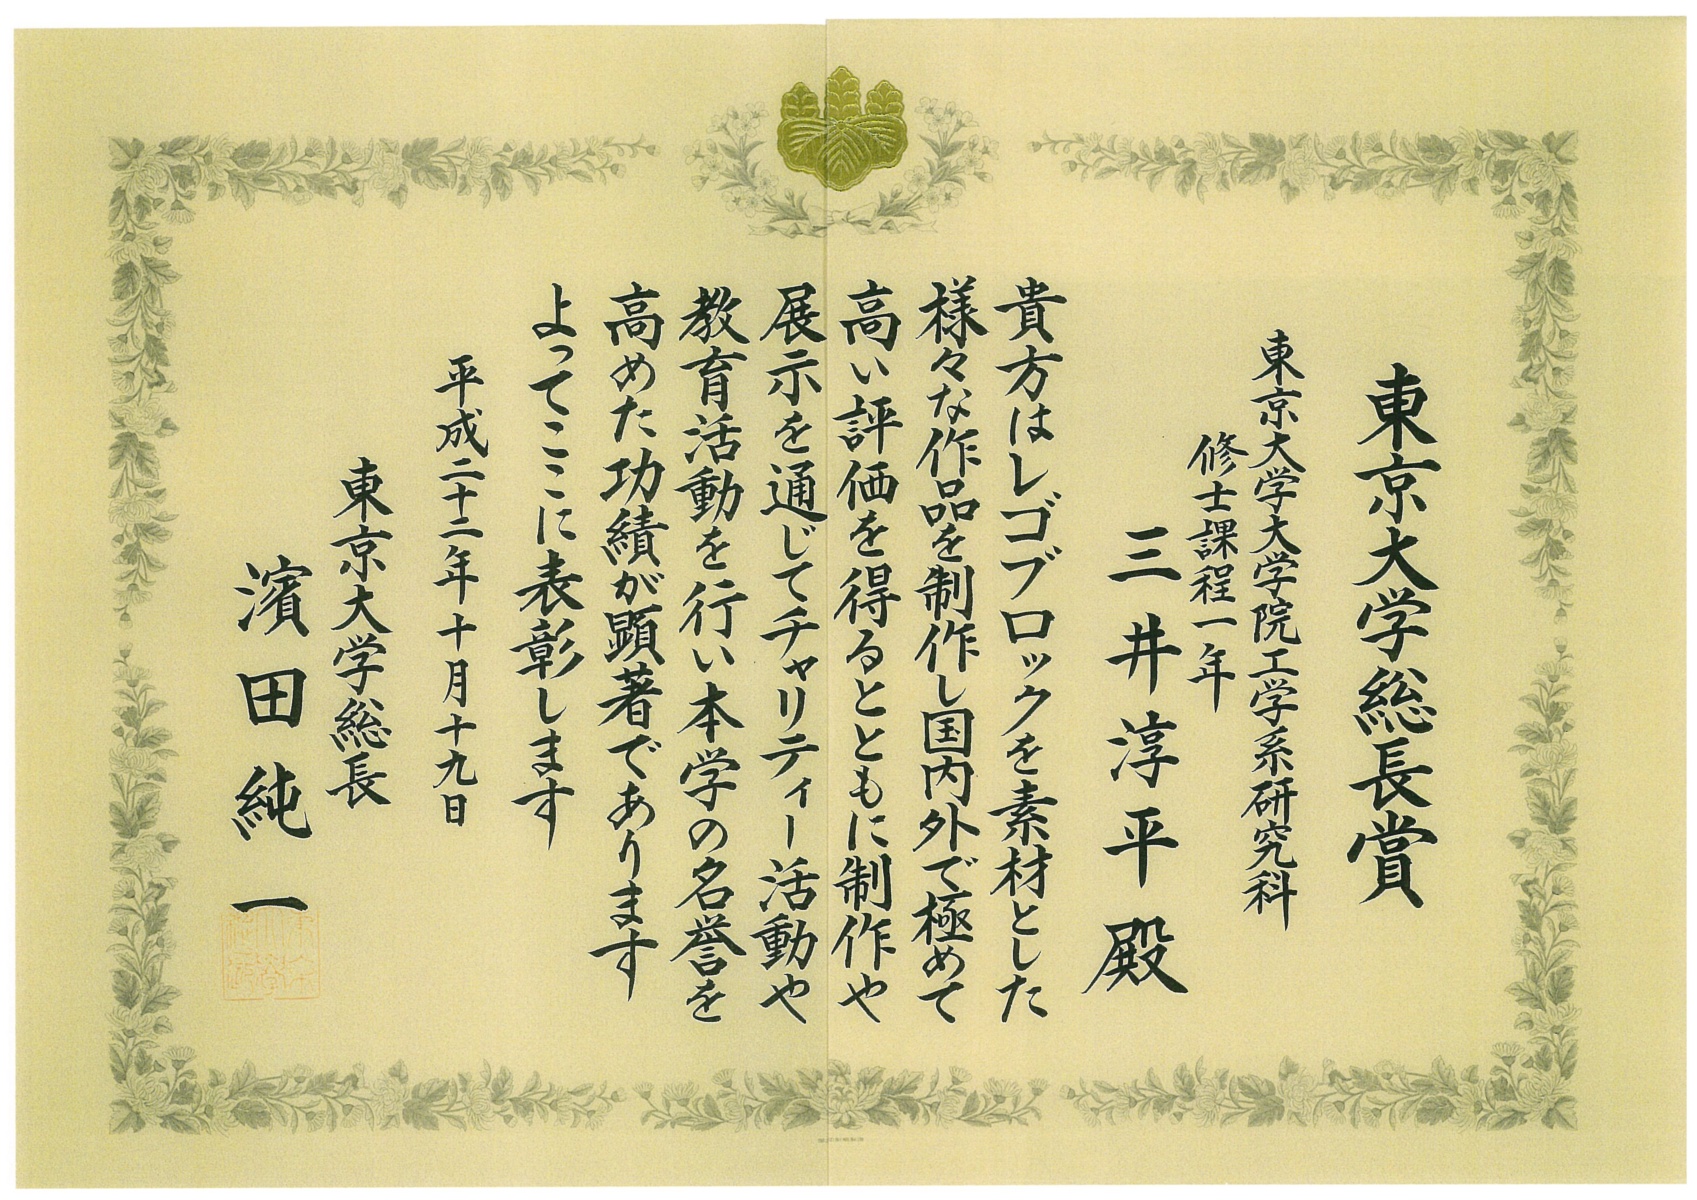 東京大学総長賞
東京大学大学院工学系研究科
修士課程一年
三井淳平殿
貴方はレゴブロックを素材とした
様々な作品を制作し国内外で極めて
高い評価を得るとともに制作や
展示を通じてチャリティー活動や
教育活動を行い本学の名誉を
高めた功績が顕著であります
よってここに表彰します
平成二十二年十月十九日
東京大学総長
濱田純一